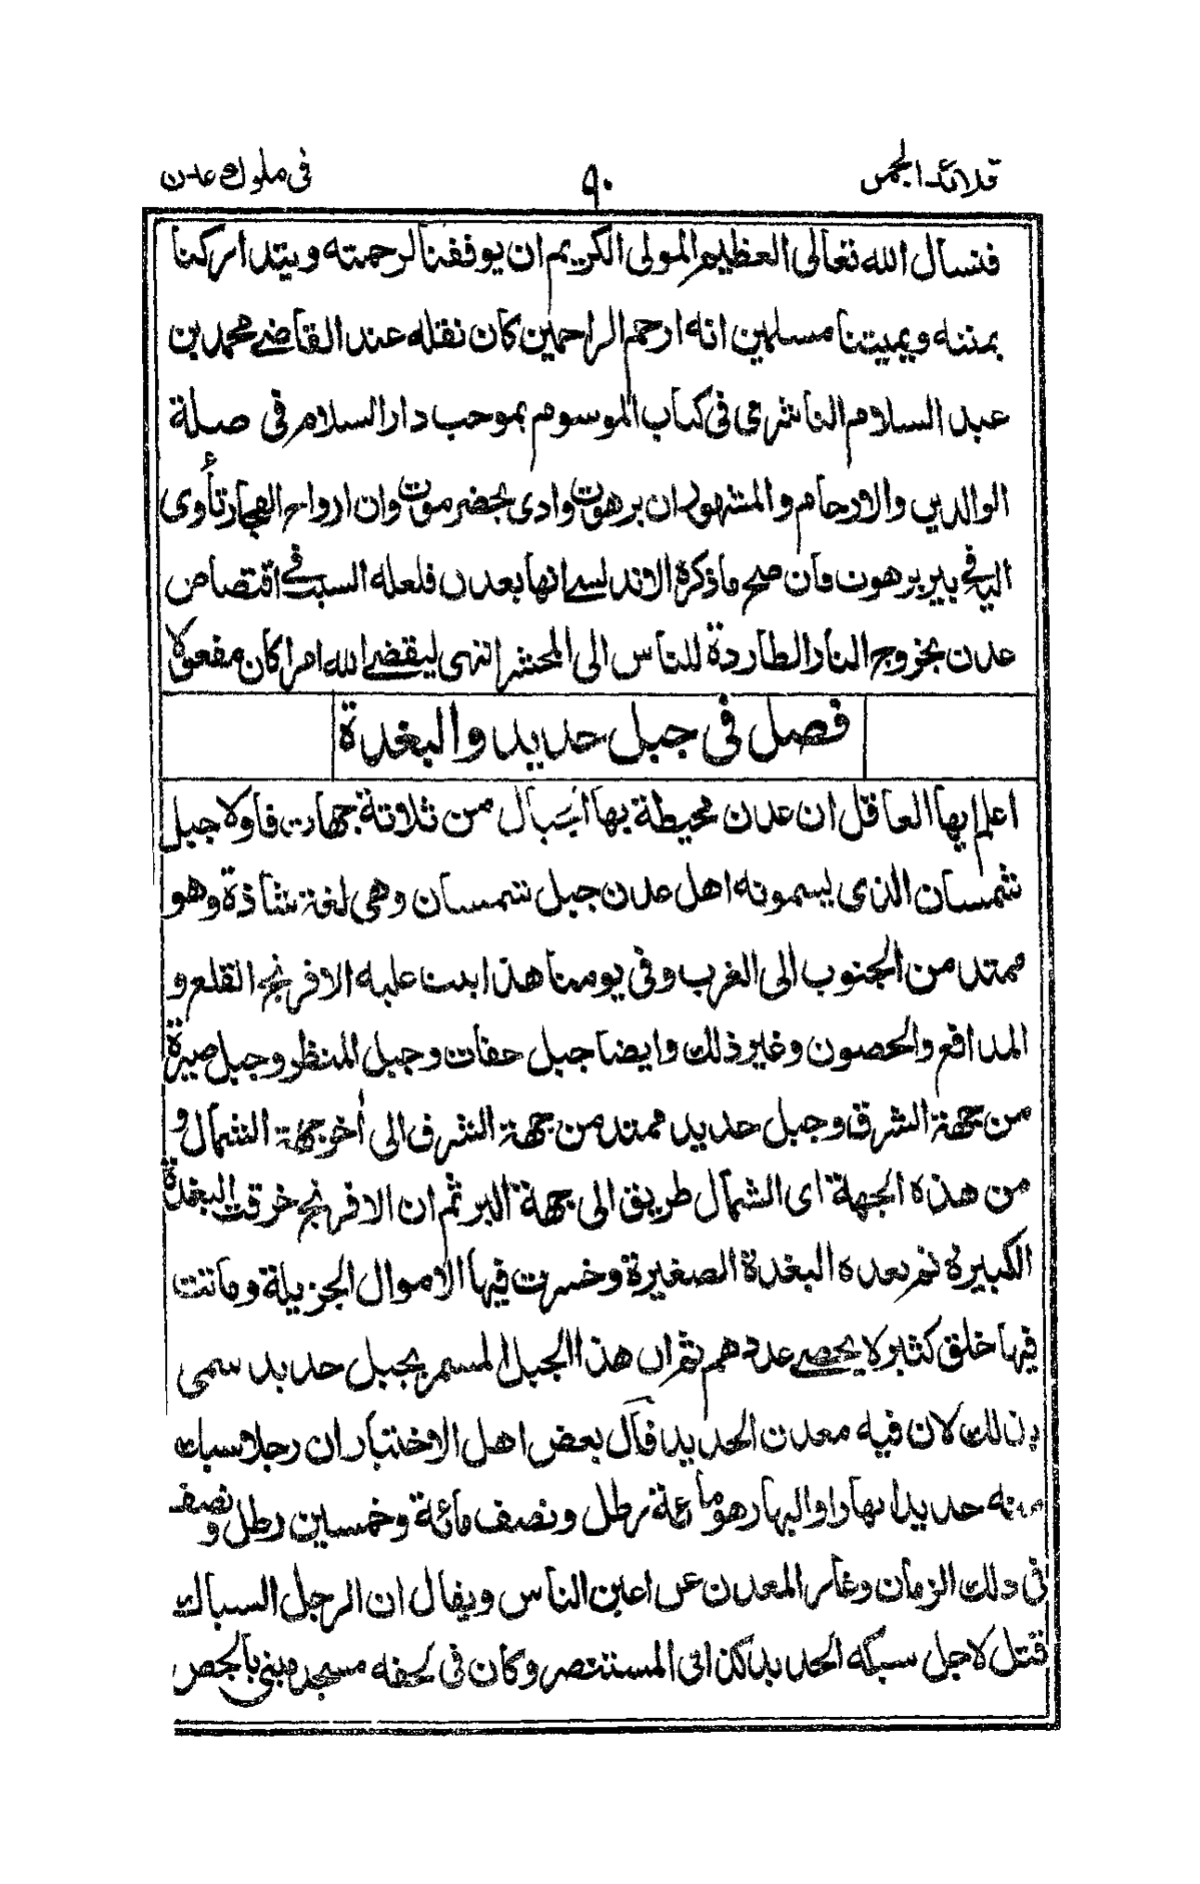 قلائد الجمن ٩٠ في ملوك عدن
فنسال الله تعالى العظيم المولى الكريم ان يوفقنا لرحمته ويتداركنا
بمنه ويميتنا مسلمين انه ارحم الراحمين كان نقله عند القاضي محمد بن
عبد السلام الناشري في كتاب الموسوم بموجب دار السلام في صلة
الوالدين والارحام والمشهور ان برهوت وادى بحضرموت وان ارواح الفجار تأوى
اليه في بير برهوت فان صح ما ذكرة الاندلسي انها بعدن فلعله السبب في اقتصاص
عدن بخروج النار الطاردة للناس الى المحشر انتهى ليقضي الله امرا كان مفعولا
فصل في جبل حديد والبغدة
اعلم ايها العاقل ان عدن محيطة بها الجبال من ثلاثة جهات فاولا جبل
شمسان الذى يسمونه اهل عدن جبل شمسان وهي لغة شاذة وهو
ممتد من الجنوب الى الغرب وفي يومنا هذا ابنت عليه الافرنج القلع و
المدافع والحصون وغير ذلك وايضا جبل حقات وجبل المنظر وجبل صيرة
من جهة الشرق وجبل حديد ممتد من جهة الشرق الى أخر جهة الشمال و
من هذه الجهة اى الشمال طريق الى جهة البر ثم ان الافرنج خرقت البغدة
الكبيرة ثم بعده البغدة الصغيرة وخسرت فيها الاموال الجزيلة وماتت
فيها خلق كثير لا يحصي عددهم ثم ان هذا الجبل المسمى بجبل حديد سمى
بذلك لان فيه معدن الحديد قال بعض اهل الاختبار ان رجلا سبك
منه حديدا بهارا والبهار هو ما ئة رطل ونصف مائة وخمسين رطل ونصف
في ذلك الزمان وغاب المعدن عن اعين الناس ويقال ان الرجل السباك
قتل لاجل سبكه الحديد كذا في المستنتصر وكان في لحفه مسجد مبنى بالجص